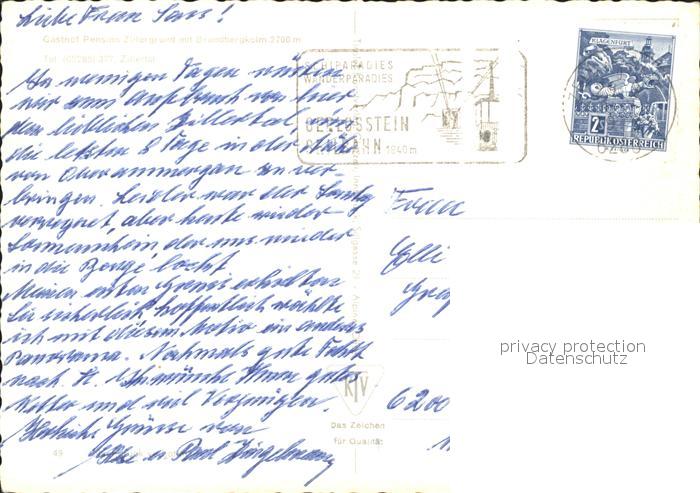 Liebe Frau Sars!
Gasthof Pension Zillergrund mit Brandbergkolm 2700 m
Tel. (05285) 377, Zillertal
In wenigen Tagen müssen
wir zum Aufbruch von hier
dem lieblichen Zillertal, um
die letzten 8 Tage in der Nähe
von Oberammergau zu ver-
bringen. Leider war der Sonntag
verregnet, aber heute wieder
Sonnenschein, der uns wieder
in die Berge lockt
Meinen ersten Gruss erhielten
Sie sicherlich, hoffentlich wählte
ich mit diesem Motiv ein anderes
Panorama. Nochmals gute Fahrt
nach H. Wir wünschen Ihnen gutes
Wetter und viel Vergnügen.
Herzliche Grüsse von
Else u Paul
SCHIPARADIES
WANDERPARADIES
GERLOSSTEIN
BAHN 1640 m
KLAGENFURT
2 S
REPUBLIK ÖSTERREICH
6280
Frau
Elli
6200
KTV
Das Zeichen
für Qualität
49
privacy protection
Datenschutz